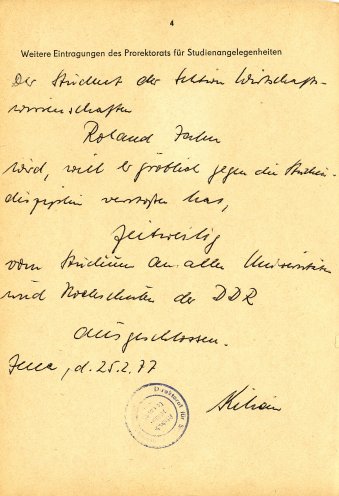 4
Weitere Eintragungen des Prorektorats für Studienangelegenheiten
Der Student der Sektion Wirtschafts-
wissenschaften
Roland Jahn
wird, weil er gröblich gegen die Studien-
disziplin verstoßen hat,
zeitweilig
vom Studium an allen Universitäten
und Hochschulen der DDR
ausgeschlossen.
Jena, d. 25.2.77
Direktorat für S